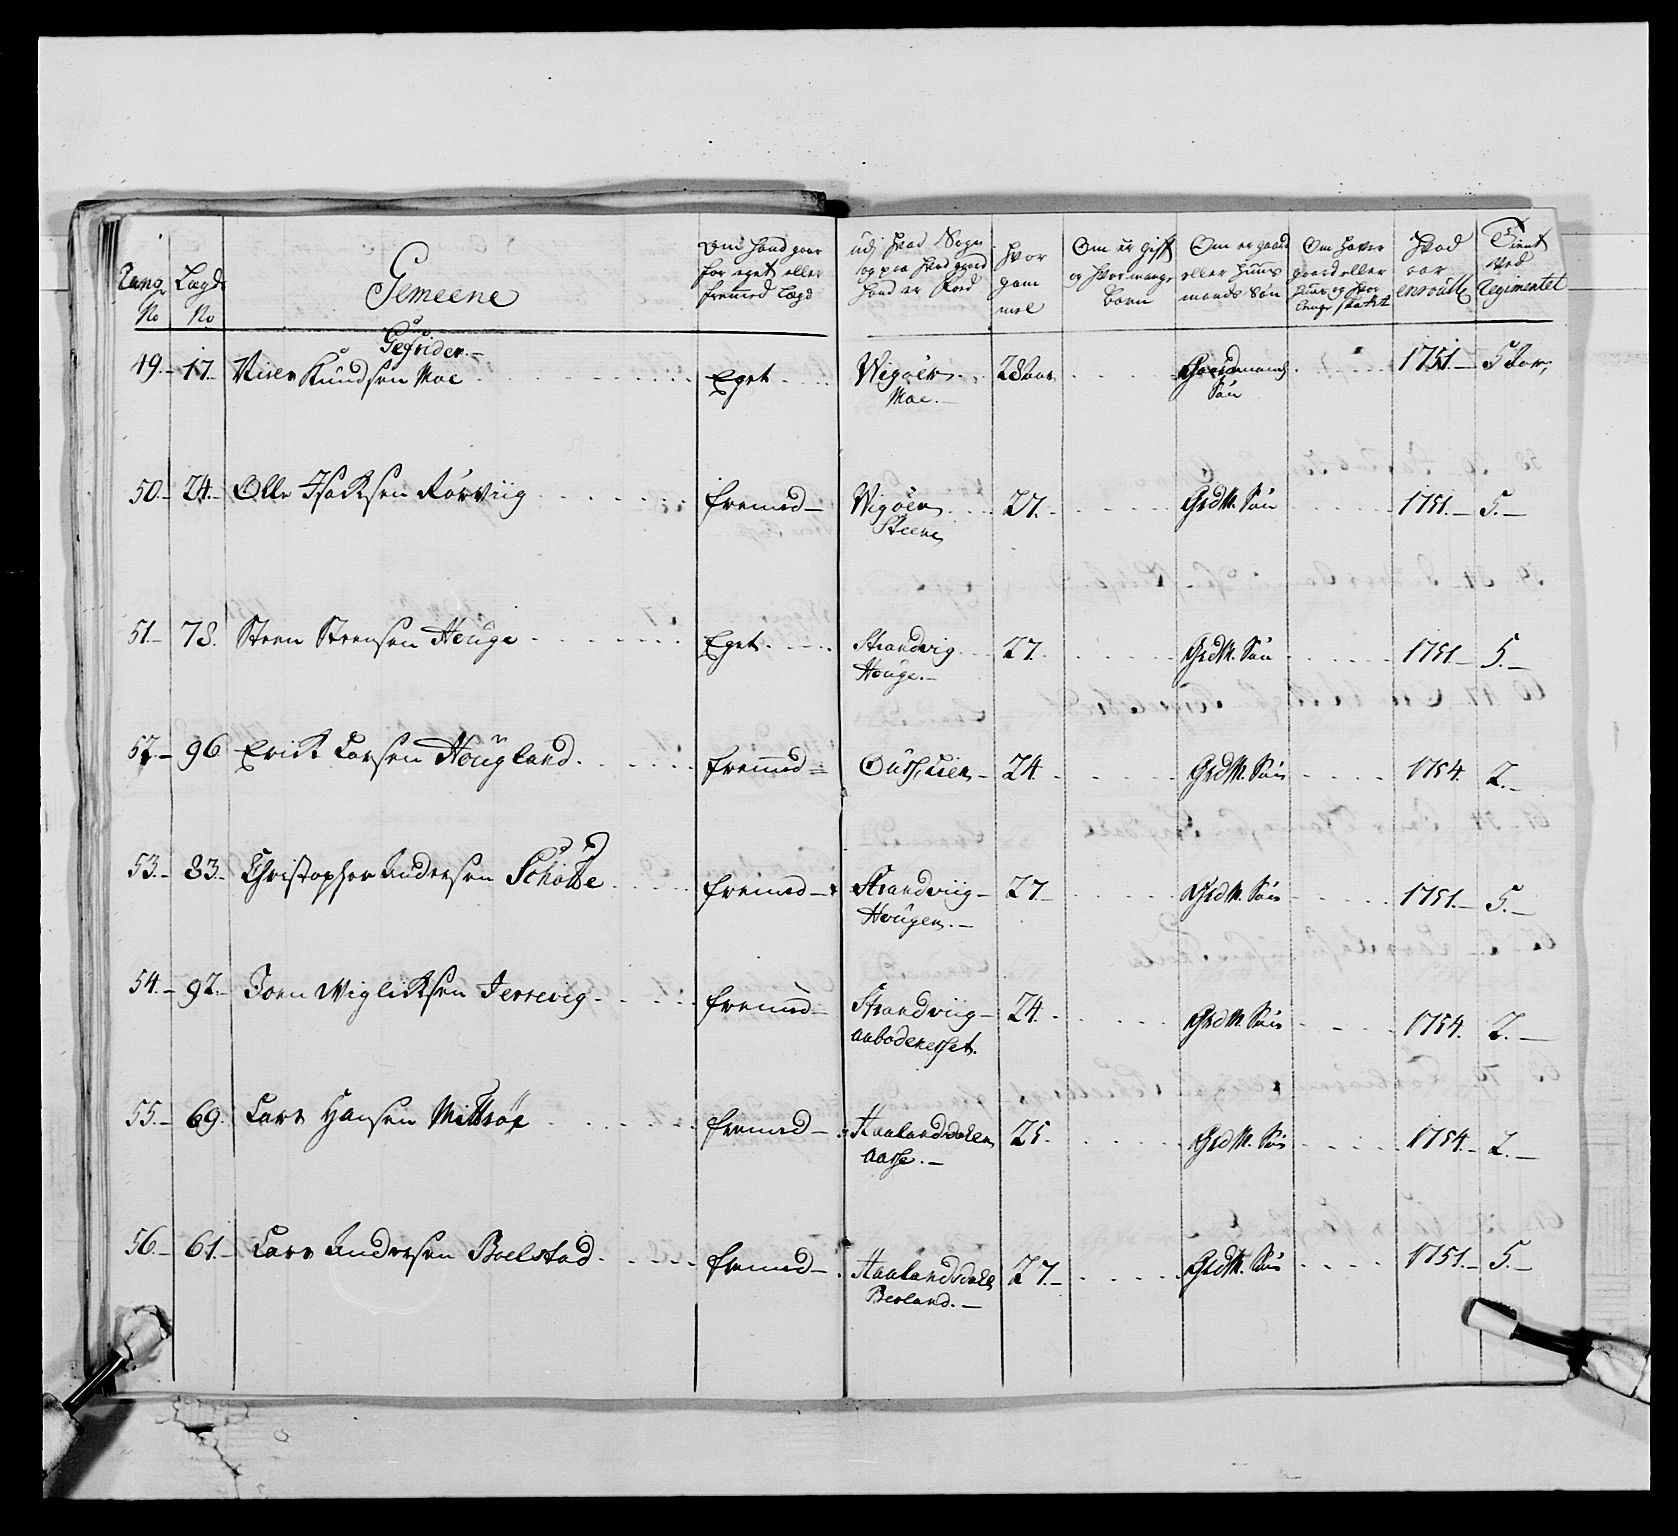 Rang No
Lægd No
Gemeene
Om hand gaar for eget eller fremmed Lægd
udj hvad Sogn og paa hvad gaard hand er fød
Hvor gam mel
Om er gift og hvor mange børn
Om er gaard eller huus mands Søn
Om haver gaard eller huus og hvor lenge
Hvad aar enroull
Tient ved Regimentet
Gefrider.-
49.- 17.- Knudsen Moe Eget Wigöer Moe.- 28 aar Gaardmands Søn 1751.- 5 Aar,
50.- 24.- Olle Isaksen Rörviig fremed- Wigöer Steene 27.- Grd M. Søn 1751.- 5.-
51.- 78. Steen Steensen Houge Eget Strandvig Houge.- 27. Grd M. Søn 1751.- 5.-
52.- 96 Erick Larsen Hougland. fremmed- 24. Grd M. Søn 1754. 2.-
53.- 83.- Christopher Andersen Schøtte fremed- Strandviig- Hougen.- 27.- Grd M. Søn 1751.- 5.-
54.- 92.- Joen Wigliksen Jerrevig. fremed- Strandviig- 24. Grd M. Søn 1754. 2.-
55.- 69. Lars Hansen fremed- Aalandsdalen Aasse.- 25. Grd M. Søn 1754.- 2.-
56.- 61.- Lars Andersen Boelstad. fremed- Aalandsdale Berland.- 27.- Grd M. Søn 1751.- 5.-